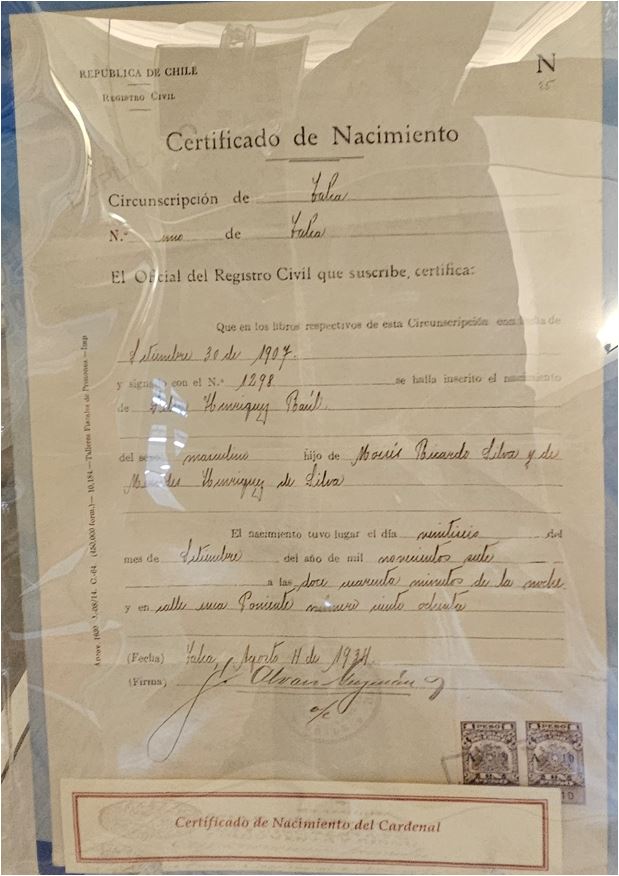 REPÚBLICA DE CHILE
REGISTRO CIVIL
N
25
Certificado de Nacimiento
Circunscripción de Talca
N.º uno de Talca
El Oficial del Registro Civil que suscribe, certifica:
Que en los libros respectivos de esta Circunscripción con fecha de
Setiembre 30 de 1907.
y signado con el N.º 1298 se halla inscrito el nacimiento
de Silva Henriquez Raúl.
del sexo masculino hijo de Moisés Ricardo Silva y de
Mercedes Henriquez de Silva
El nacimiento tuvo lugar el día veintiseis del
mes de Setiembre del año de mil novecientos siete
a las doce cuarenta minutos de la noche
y en calle una Poniente número ciento ochenta
(Fecha) Talca, Agosto 11 de 1934.
(Firma)
1 PESO 1 PESO
10
Certificado de Nacimiento del Cardenal